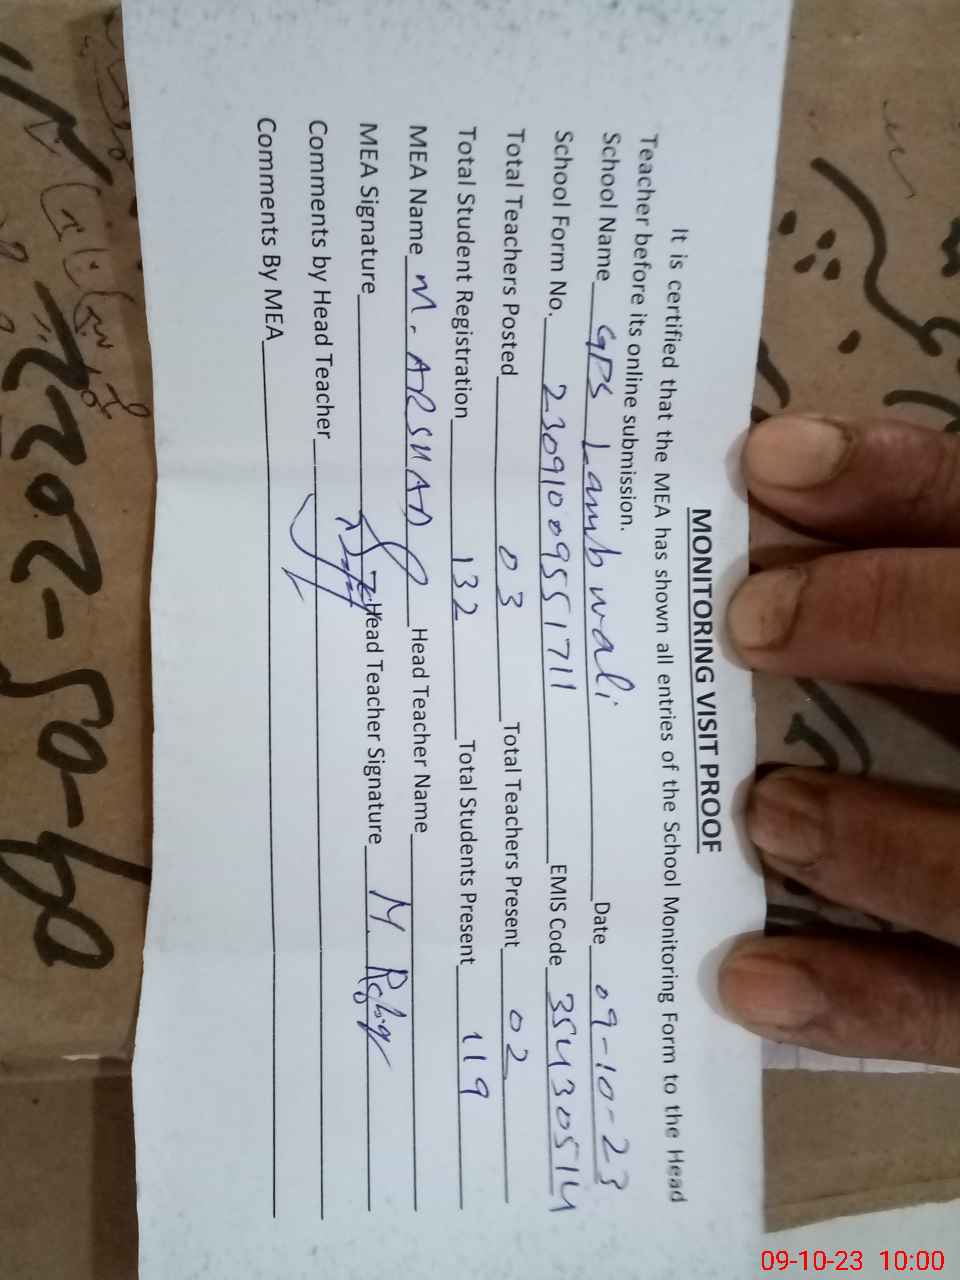 MONITORING VISIT PROOF
It is certified that the MEA has shown all entries of the School Monitoring Form to the Head
Teacher before its online submission.
School Name GPS Lamb wali Date 09-10-23
School Form No. 23091009551711 EMIS Code 35430514
Total Teachers Posted 03 Total Teachers Present 02
Total Student Registration 132 Total Students Present 119
MEA Name M. ARSHAD Head Teacher Name
MEA Signature Head Teacher Signature M.
Comments by Head Teacher
Comments By MEA
09-10-23 10:00